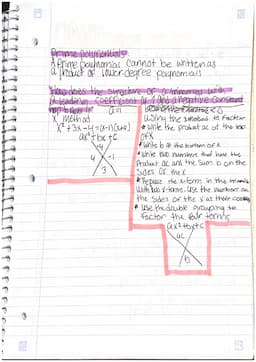 Prime polynomials
A prime polynomial cannot be written as
a product of lower degree polynomials
How does the structure of a trinomial with
a leading coefficient of 1 and a negative constant
a=1
X method
x² + 3x - 4 = (x-1)(x+4)
ax² + bx + c
-4
4 -1
3
using the method to factor
* Write the product ac at the top
of X
* Write b at the bottom of X
* Write two numbers that have the
product ac and the sum b on the
sides of the X
* Replace the x-term in the
with two x-terms. Use the numbers on
the sides of the X as their
* Use the double grouping to
factor the four terms
ax² + bx + c
ac
b